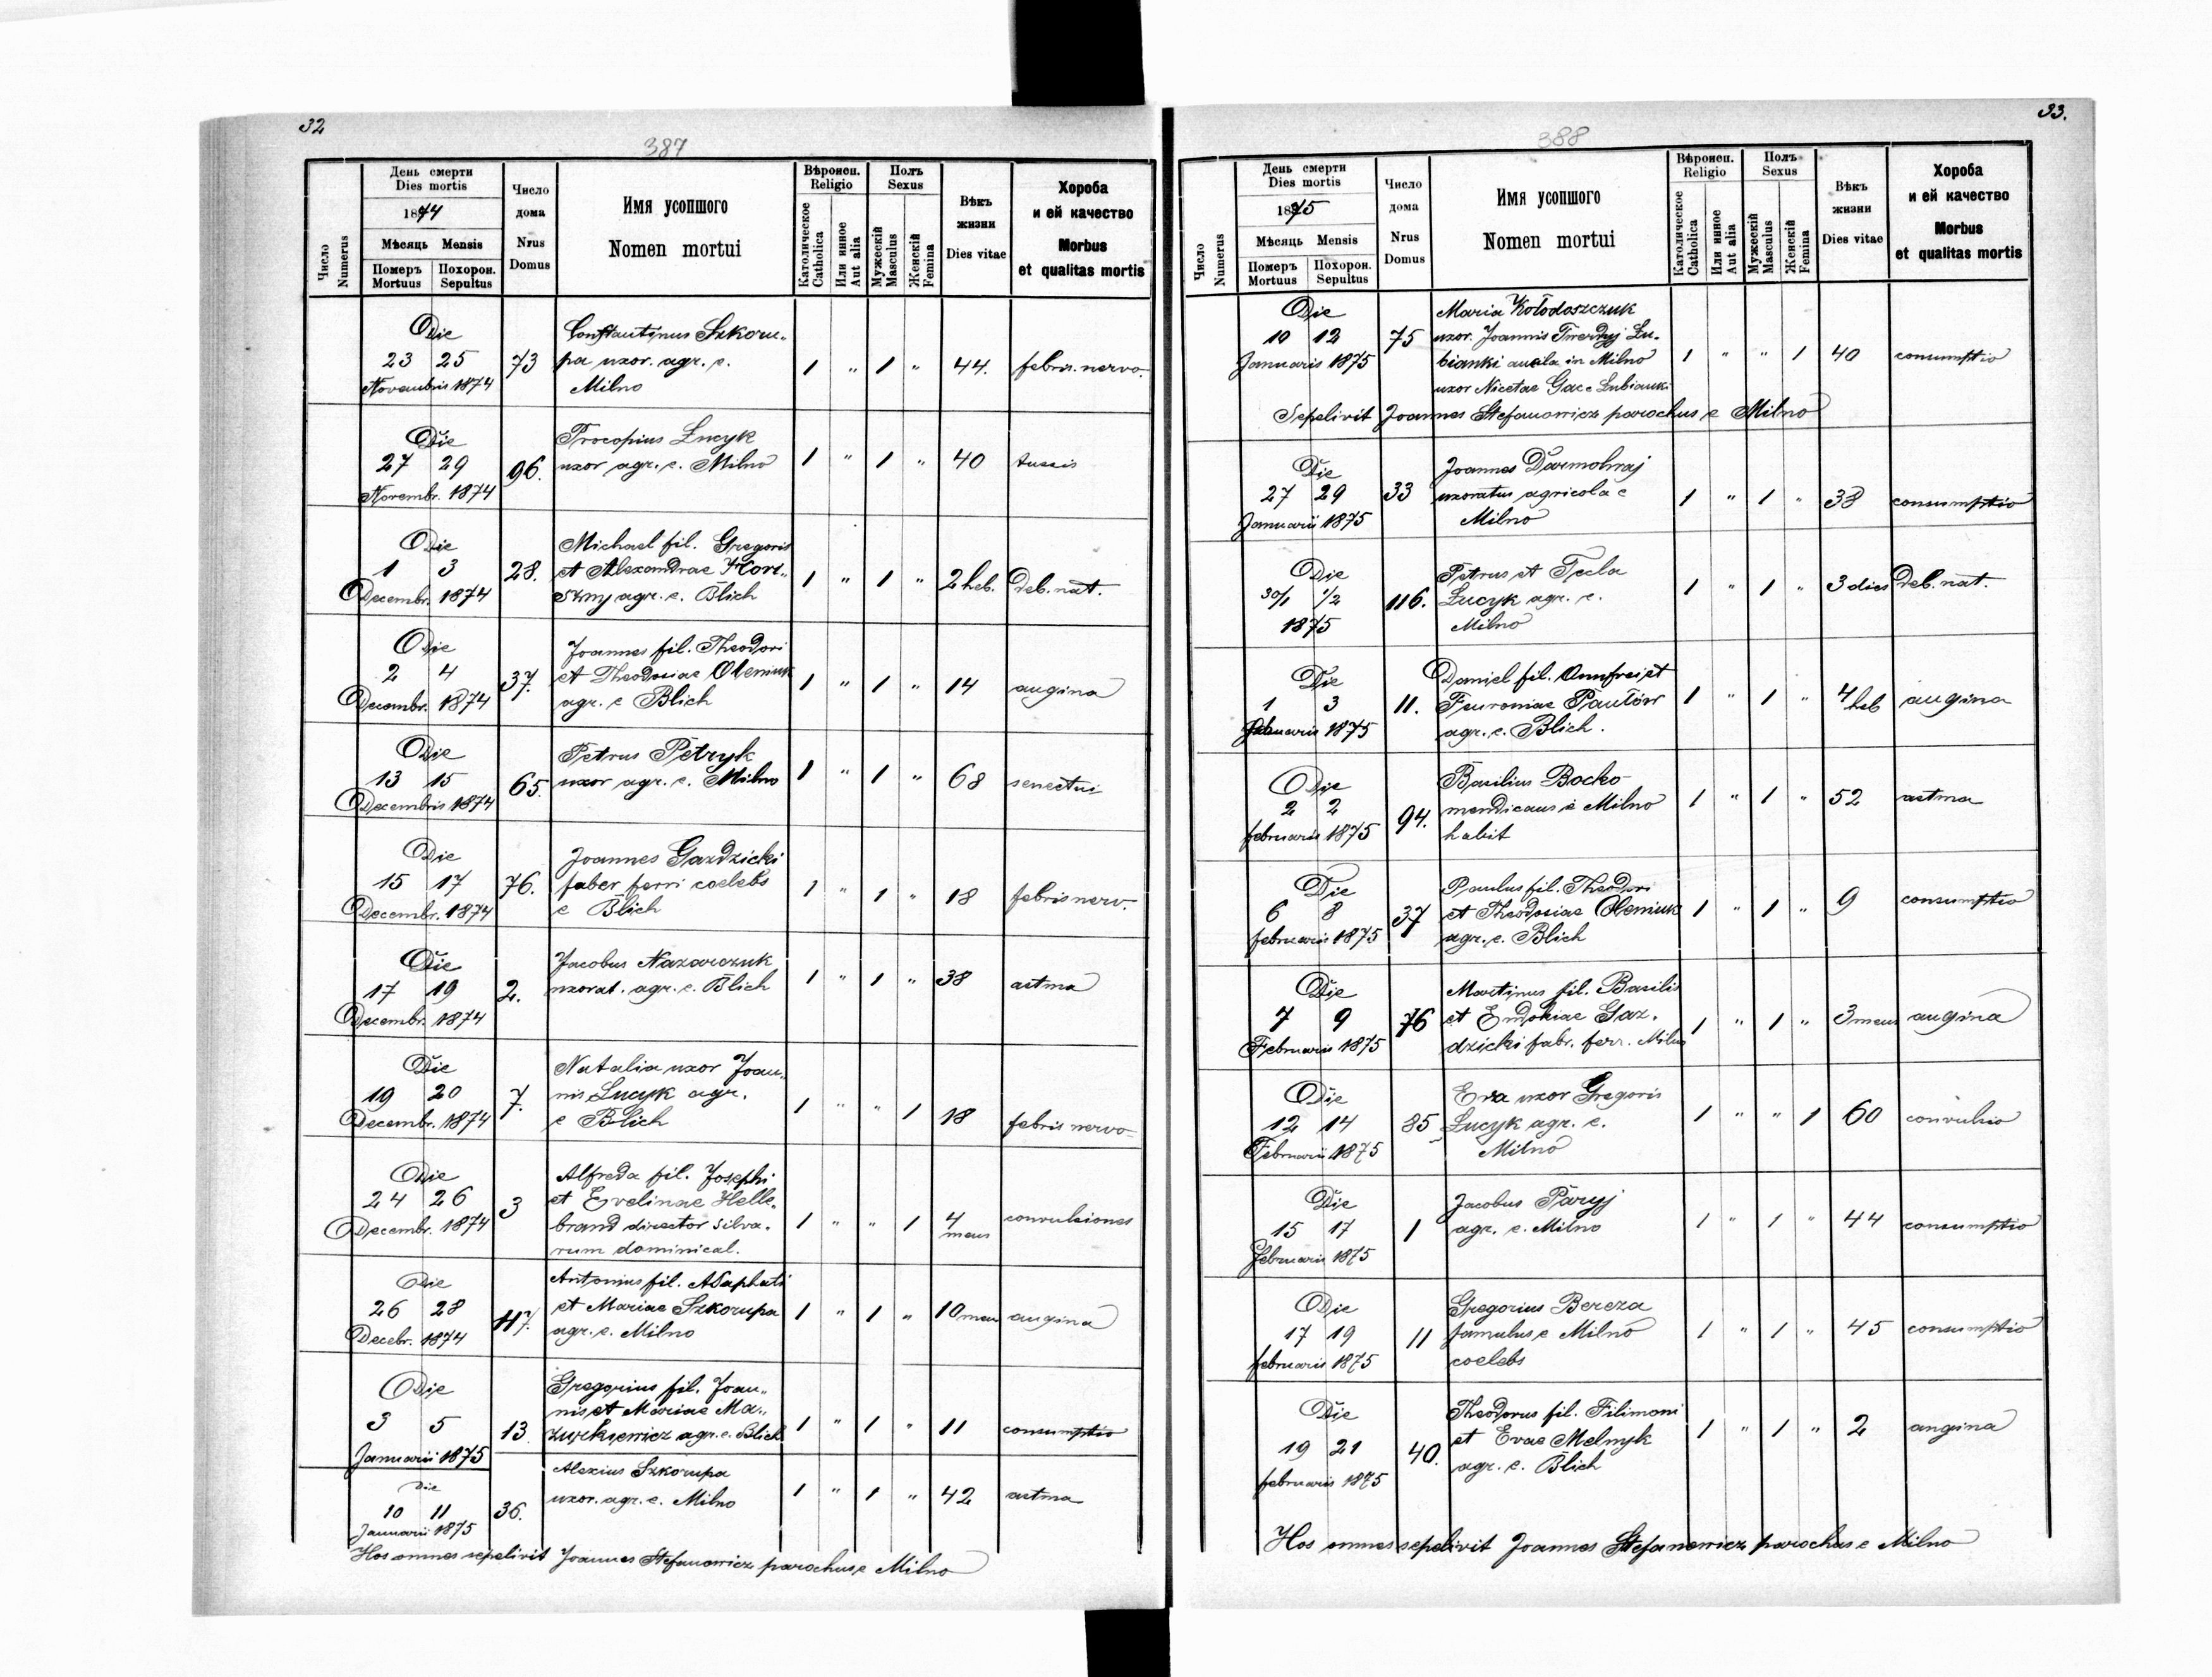 32
387
День смерти
Dies mortis
1874
Мѣсяць Mensis
Померъ Похорон.
Mortuus Sepultus
Число
Numerus
Число
дома
Nrus
Domus
Имя усопшого
Nomen mortui
Вѣроисп.
Religio
Католическое
Catholica
Или инное
Aut alia
Полъ
Sexus
Мужескій
Masculus
Женскій
Femina
Вѣкъ
жизни
Dies vitae
Хороба
и ей качество
Morbus
et qualitas mortis
Die
23 25
Novembris 1874
73
Constantinus Szkoru„
pa uxor. agr. e.
Milno
1 " 1 " 44. febris. nervo.
Die
27 29
Novembr. 1874
96.
Procopius Łucyk
uxor agr. e. Milno
1 " 1 " 40 tussis
Die
1 3
Decembr. 1874
28.
Michael fil. Gregoris
et Alexandrae
agr. e. Blich
1 " 1 " 2 heb. Deb. nat.
Die
2 4
Decembr. 1874
37.
Joannes fil. Theodori
et Theodosiae Oleniuk
agr. e Blich
1 " 1 " 14 angina
Die
13 15
Decembris 1874
65.
Petrus Petryk
uxor agr. e. Milno
1 " 1 " 68 senectui
Die
15 17
Decembr. 1874
76.
Joannes Gazdzicki
faber ferri coelebs
e Blich
1 " 1 " 18 febris nerv.
Die
17 19
Decembr. 1874
2.
Jacobus Nazarczuk
uxorat. agr. e. Blich
1 " 1 " 38 astma
Die
19 20
Decembr. 1874
7.
Natalia uxor Joan„
nis Łucyk agr.
e Blich
1 " " 1 18 febris nervo
Die
24 26
Decembr. 1874
3
Alfreda fil. Josephi
et Evelinae Helle„
brand director silva„
rum dominical.
1 " " 1 4 mens convulsiones
Die
26 28
Decebr. 1874
117.
Antonius fil. Asaphati
et Mariae Szkorupa
agr. e. Milno
1 " 1 " 10 mens angina
Die
3 5
Januarii 1875
13
Gregorius fil. Joan„
nis et Mariae Ma„
zurkiewicz agr. e. Blich
1 " 1 " 11 consumptio
Die
10 11
Januarii 1875
36.
Alexius Szkorupa
uxor. agr. e. Milno
1 " 1 " 42 astma
Hos omnes sepelivit Joannes Stefanowicz parochus e Milno
33.
388
День смерти
Dies mortis
1875
Мѣсяць Mensis
Померъ Похорон.
Mortuus Sepultus
Число
Numerus
Число
дома
Nrus
Domus
Имя усопшого
Nomen mortui
Вѣроисп.
Religio
Католическое
Catholica
Или инное
Aut alia
Полъ
Sexus
Мужескій
Masculus
Женскій
Femina
Вѣкъ
жизни
Dies vitae
Хороба
и ей качество
Morbus
et qualitas mortis
Die
10 12
Januaris 1875
75
Maria Kołodoszczuk
uxor. Joannis Twerdyj Łu„
bianki ancila in Milno
uxor Nicetae Gac e Łubianki
1 " " 1 40 consumptio
Sepelivit Joannes Stefanowicz parochus e Milno
Die
27 29
Januarii 1875
33
Joannes Darmohraj
uxoratus agricola e
Milno
1 " 1 " 38 consumptio
Die
30/1 1/2
1875
116.
Petrus et Tecla
Łucyk agr. e.
Milno
1 " 1 " 3 dies Deb. nat.
Die
1 3
1875
11.
Daniel fil. Onufrei et
Feuroniae Pautów
agr. e. Blich.
1 " 1 " 4 heb angina
Die
2 2
februaris 1875
94.
Basilius Bocko
mendicans e Milno
habit
1 " 1 " 52 astma
Die
6 8
februaris 1875
37
Paulus fil. Theodori
et Theodosiae Oleniuk
agr. e. Blich
1 " 1 " 9 consumptio
Die
7 9
Februaris 1875
76
Martinus fil. Basilis
et Eudokiae Gaz„
dzicki fabr. ferr. Milno
1 " 1 " 3 mens angina
Die
12 14
Februarii 1875
85
Eva uxor Gregoris
Łucyk agr. e.
Milno
1 " " 1 60 convulsio
Die
15 17
Februaris 1875
1
Jacobus Paryj
agr. e. Milno
1 " 1 " 44 consumptio
Die
17 19
februaris 1875
11
Gregorius Bereza
famulus e Milno
coelebs
1 " 1 " 45 consumptio
Die
19 21
februaris 1875
40.
Theodorus fil. Filimoni
et Evae Melnyk
agr. e. Blich
1 " 1 " 2 angina
Hos omnes sepelivit Joannes Stefanowicz parochus e Milno